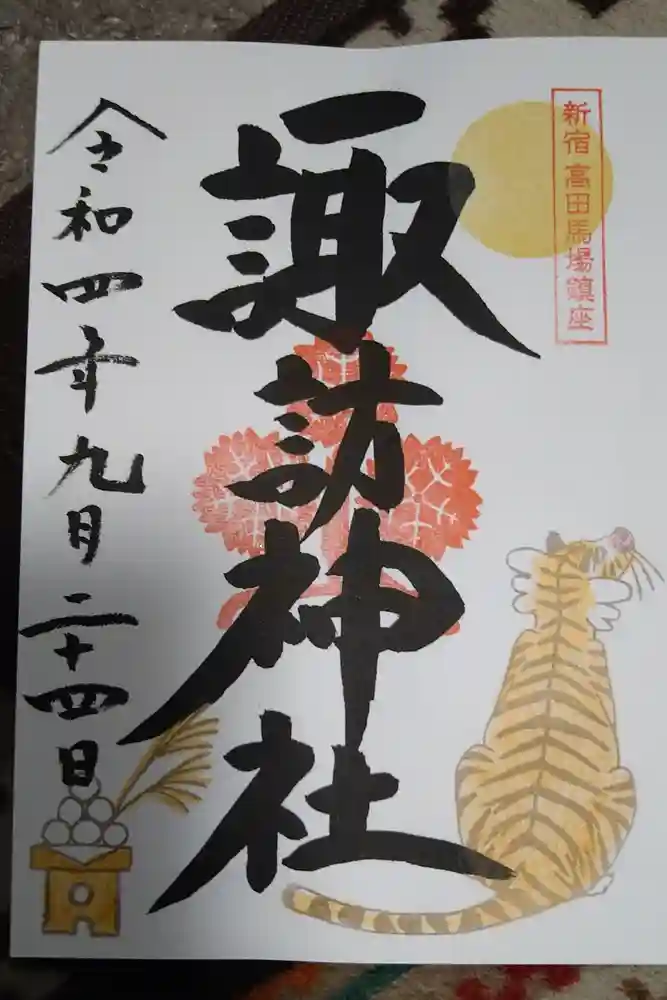 新宿 高田馬場鎮座
諏訪神社
令和四年九月二十四日